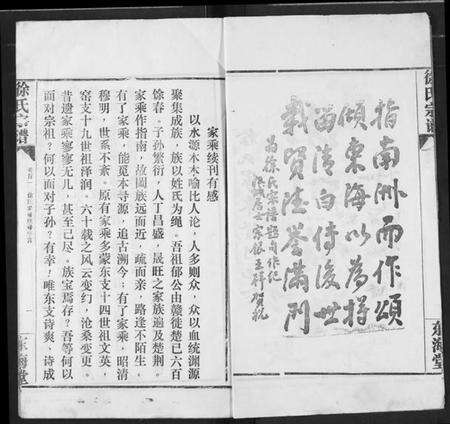 徐氏宗譜
指南洲而作頌
傾東海以為樽
西清白傳後世
載賢陸譽滿門
為徐氏宗譜
東海堂
家乘续刊有感
以水源木本喻比人论。人多则众，众以血统渊源
聚集成族，族以姓氏为绳。吾祖郁公由赣徙楚已六百
馀春。子孙繁衍，人丁昌盛，最旺之家族遍及楚荆。
家乘作指南，故阖族远而近，疏而亲，路逢不陌生。
有了家乘，能觅本寻源，追古溯今；有了家乘，昭清
穆明，世系不紊。原有家乘多蒙东支十四世祖文英，
窑支十九世祖泽润。六十载之风云变幻，沧桑变更。
昔遗家乘寥寥无几，甚至已尽。族宝焉存？吾等何以
面对宗祖？何以面对子孙？有幸！唯东支诗爽、诗成
徐氏宗譜
东海堂